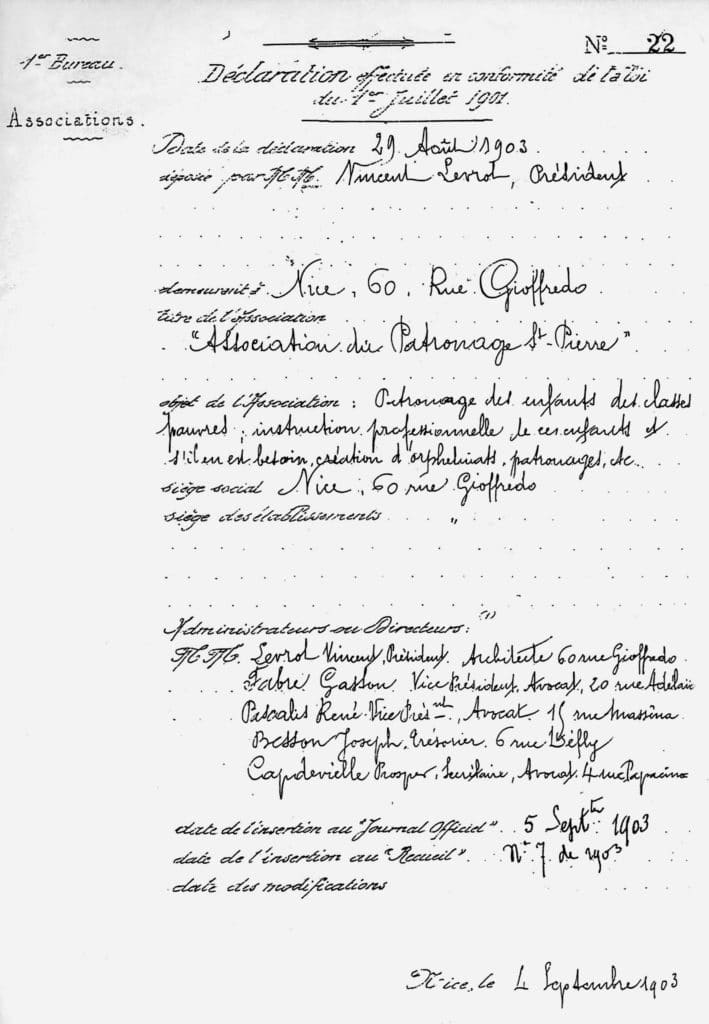 1er Bureau.
Associations.
No 22
Déclaration effectuée en conformité de la loi
du 1er Juillet 1901.
Date de la déclaration 29 Août 1903.
déposée par M.M. Vincent Levrot, Président
demeurant à Nice, 60, Rue Gioffredo
titre de l'Association
"Association du Patronage St-Pierre"
objet de l'Association : Patronage des enfants des classes
pauvres ; instruction professionnelle de ces enfants et
s'il en est besoin, création d'orphelinats, patronages, etc.
siège social Nice, 60 rue Gioffredo
siège des établissements "
Administrateurs ou Directeurs : (1)
M.M. Levrot Vincent, Président. Architecte 60 rue Gioffredo
Fabre Gaston Vice Président, Avocat, 20 rue Adélaïde
Pascalis René Vice Présnt, Avocat. 15 rue Masséna
Besson Joseph, trésorier. 6 rue Défly
Capdevielle Prosper, Secrétaire, Avocat 4 rue Papacino
date de l'insertion au "Journal Officiel" 5 Septbre 1903
date de l'insertion au "Recueil". No 7 de 1903
date des modifications
Nice, le 4 Septembre 1903